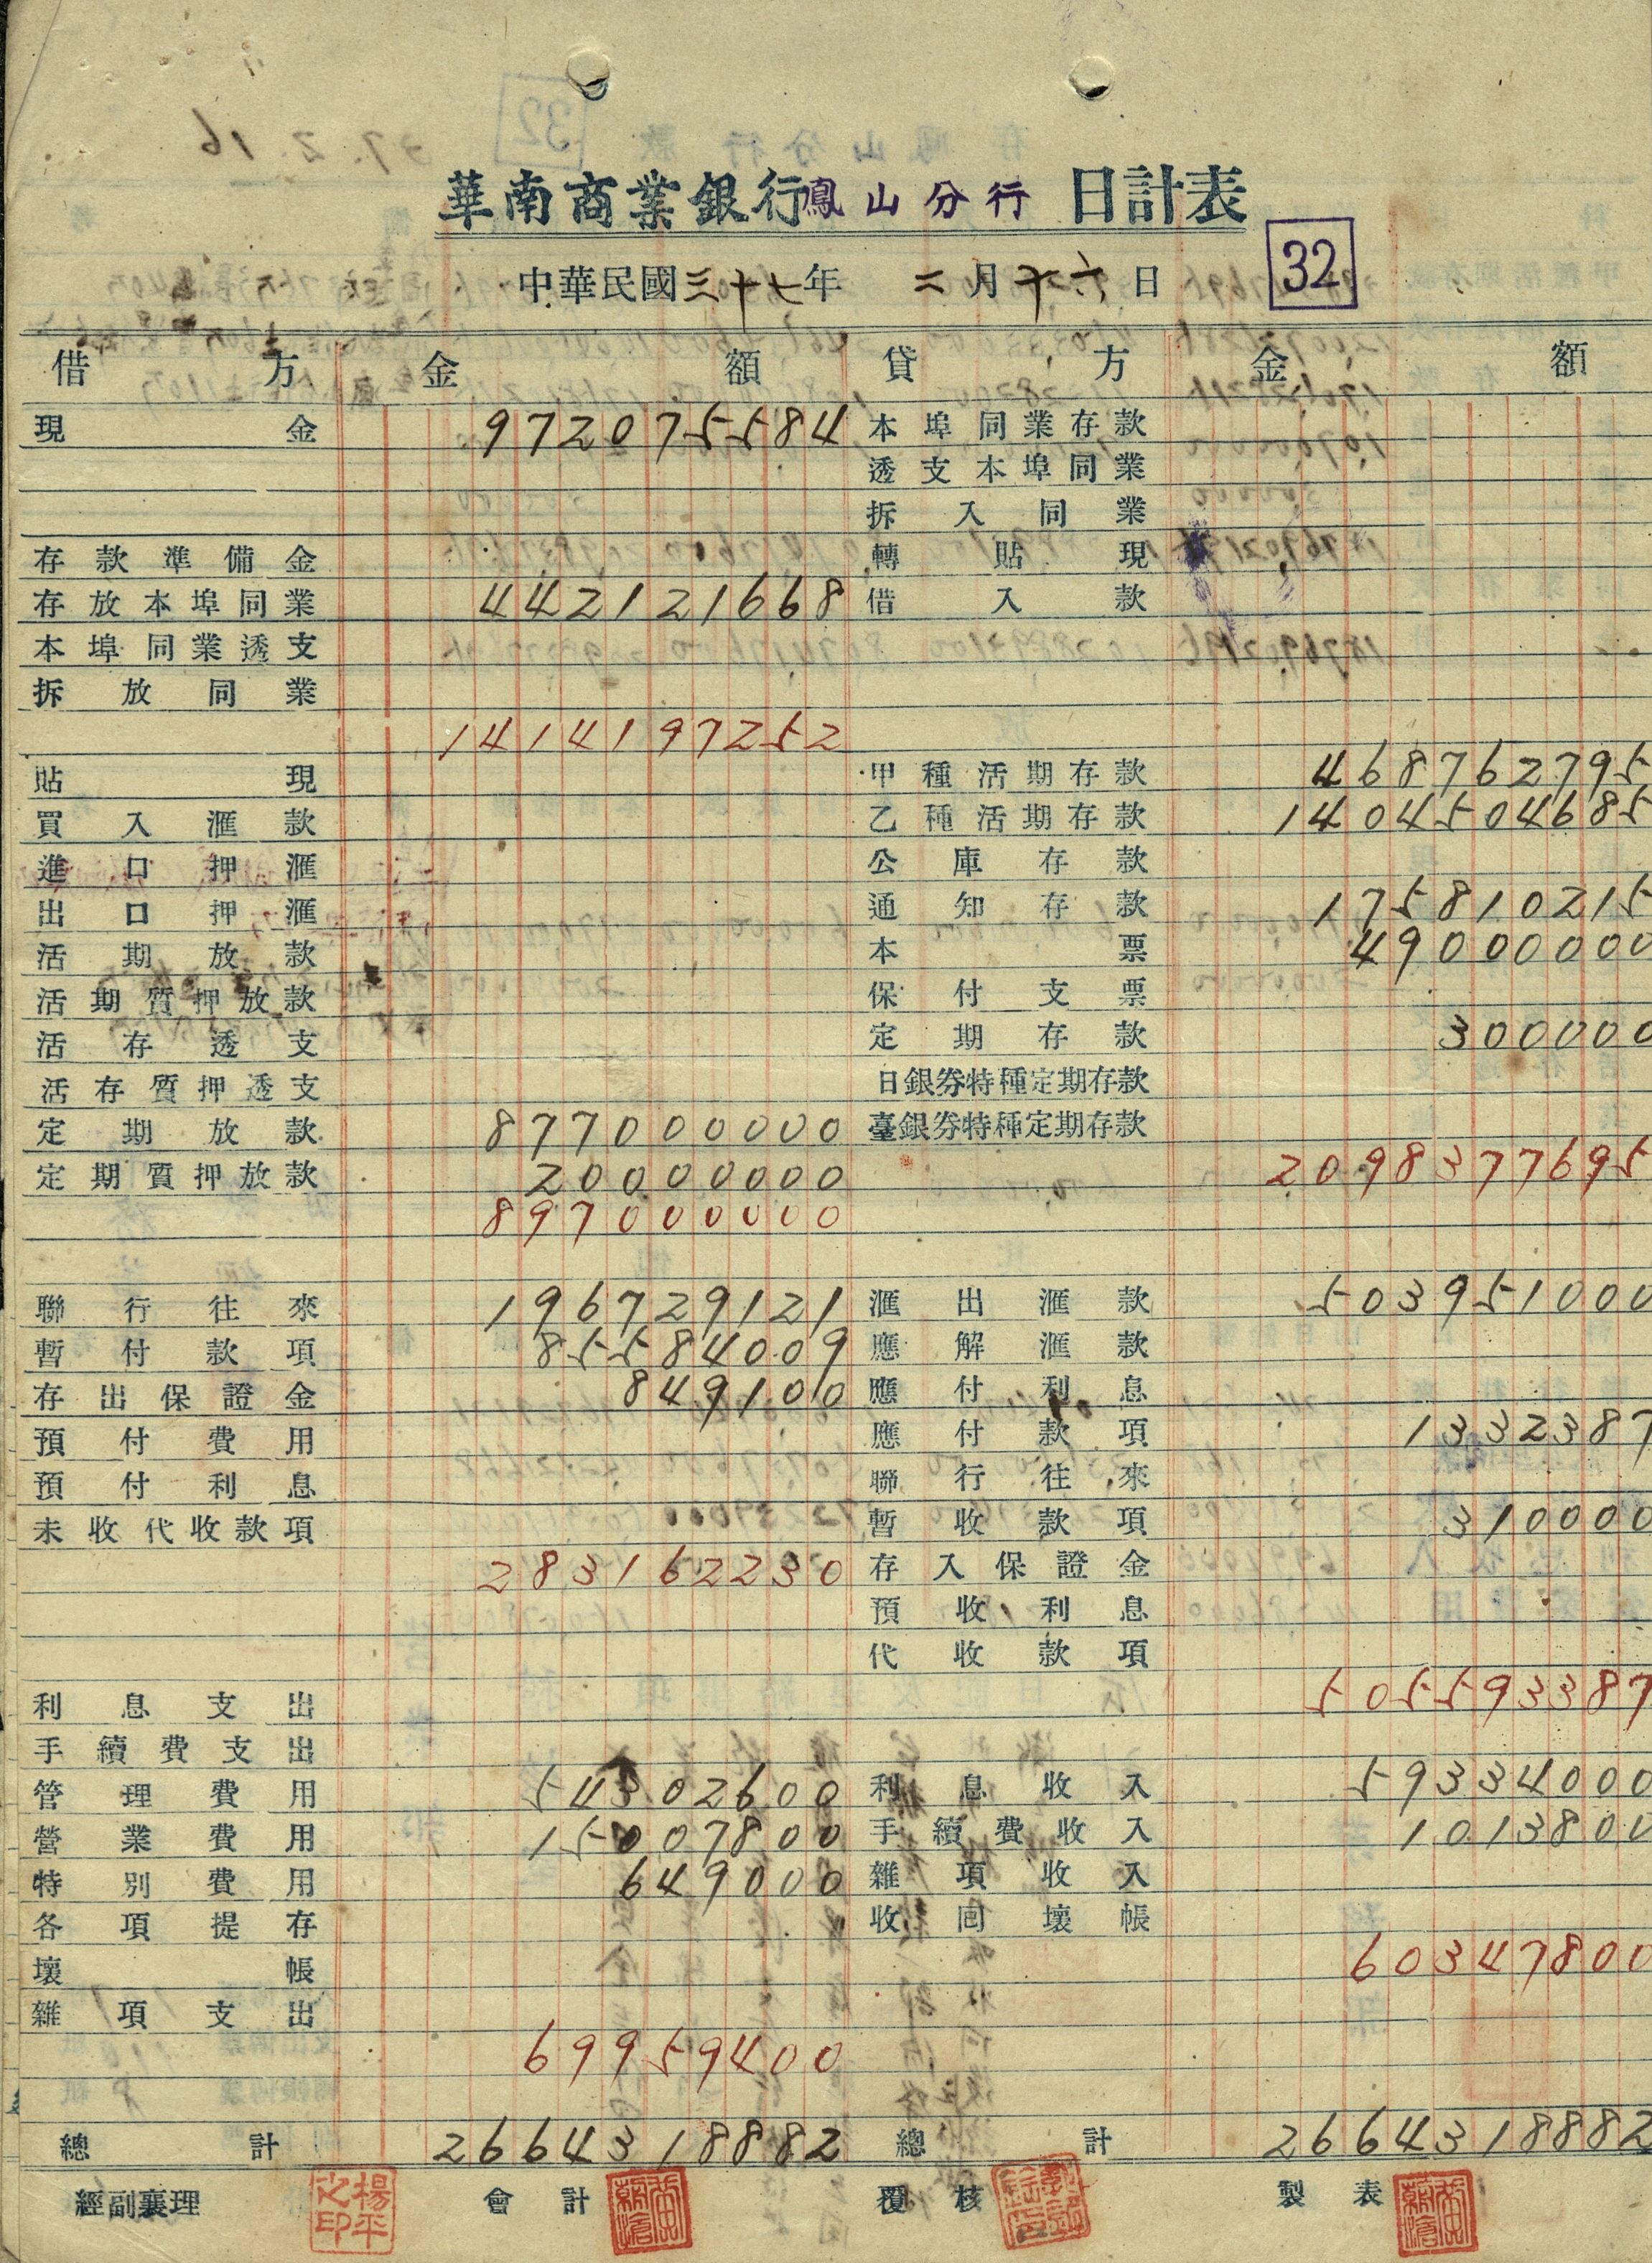 華南商業銀行鳳山分行 日計表
中華民國三十七年 二月十六日
32
借方 金額 貸方 金額
現金 972075584 本埠同業存款
透支本埠同業
拆入同業
存款準備金 轉貼現
存放本埠同業 442121668 借入款
本埠同業透支
拆放同業
1414197252
貼現 甲種活期存款 468762795
買入滙款 乙種活期存款 1404504685
進口押滙 公庫存款
出口押滙 通知存款 175810215
活期放款 本票 49000000
活期質押放款 保付支票
活存透支 定期存款 300000
活存質押透支 日銀券特種定期存款
定期放款 877000000 臺銀券特種定期存款
定期質押放款 20000000 2098377695
897000000
聯行往來 196729121 滙出滙款 503951000
暫付款項 85584009 應解滙款
存出保證金 849100 應付利息
預付費用 應付款項 1332387
預付利息 聯行往來
未收代收款項 暫收款項 310000
283162230 存入保證金
預收利息
代收款項
利息支出 505593387
手續費支出
管理費用 54302600 利息收入 59334000
營業費用 15007800 手續費收入 1013800
特別費用 649000 雜項收入
各項提存 收囘壞帳
壞帳 60347800
雜項支出
69959400
總計 2664318882 總計 2664318882
經副襄理 楊平之印 會計 覆核 製表